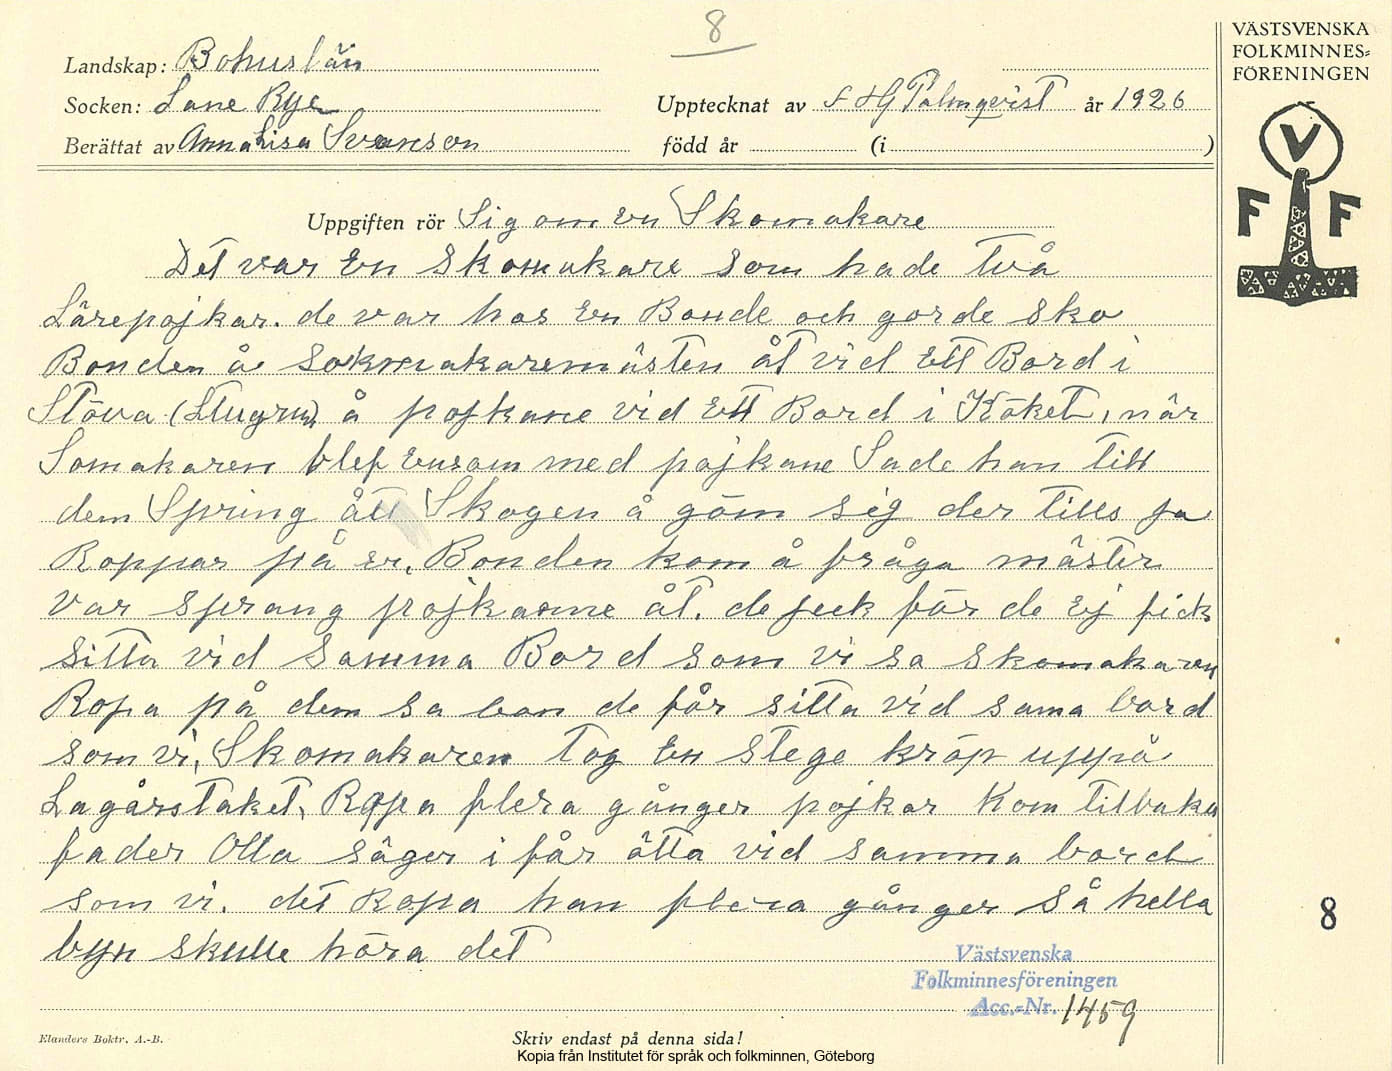 8
VÄSTSVENSKA
FOLKMINNES-
FÖRENINGEN
V
F F
Landskap: Bohuslän
Socken: Lane Rye
Upptecknat av F HG Palmqvist år 1926
Berättat av Anna Lisa Svanson
född år (i )
Uppgiften rör Sig om En Skomakare
Det var En Skomakare som hade Två
Lärepojkar. de var hos En Bonde och gorde sko
Bonden å sokmakaremästen åt vid Ett Bord i
Stöva (Stugun) å pojkane vid Ett Bord i Köket, når
Somakaren blef Ensam med pojkane Sade han till
dem Spring ått Skogen å göm sig der tills ja
Roppar på er. Bonden kom å fråga mäster
var sprang pojkarne åt. de geck för de Ej fick
sitta vid samma Bord som vi sa skomakaren
Ropa på dem sa bon de får sitta vid sama bord
som vi, Skomakaren Tog En stege kröp uppå
Lagårstaket, Ropa flera gånger pojkar Kom tilbaka
fader Olla säger i får ätta vid samma bord
som vi. det Ropa han flera gånger så hella
byn skulle höra det
8
Västsvenska
Folkminnesföreningen
Acc.-Nr. 1459
Elanders Boktr. A.-B.
Skriv endast på denna sida!
Kopia från Institutet för språk och folkminnen, Göteborg